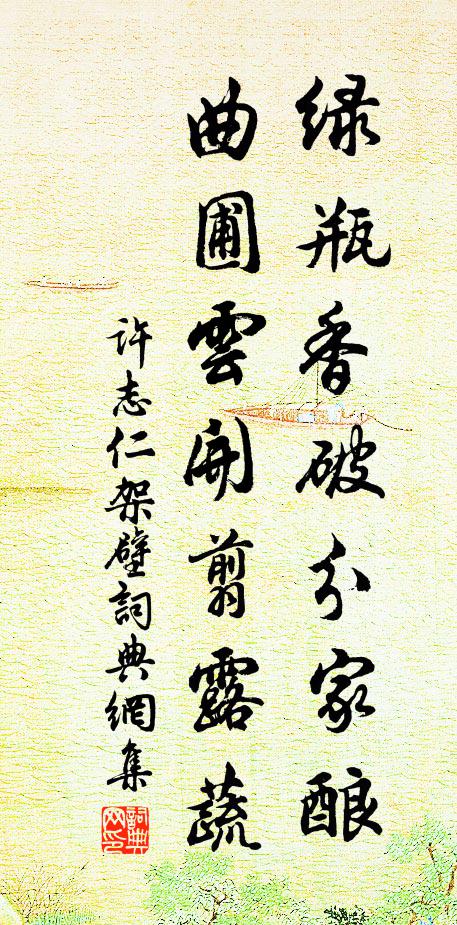 绿瓶香破分家酿
曲圃雲開翦露蔬
許志仁架壁詞典網集
詞典网印